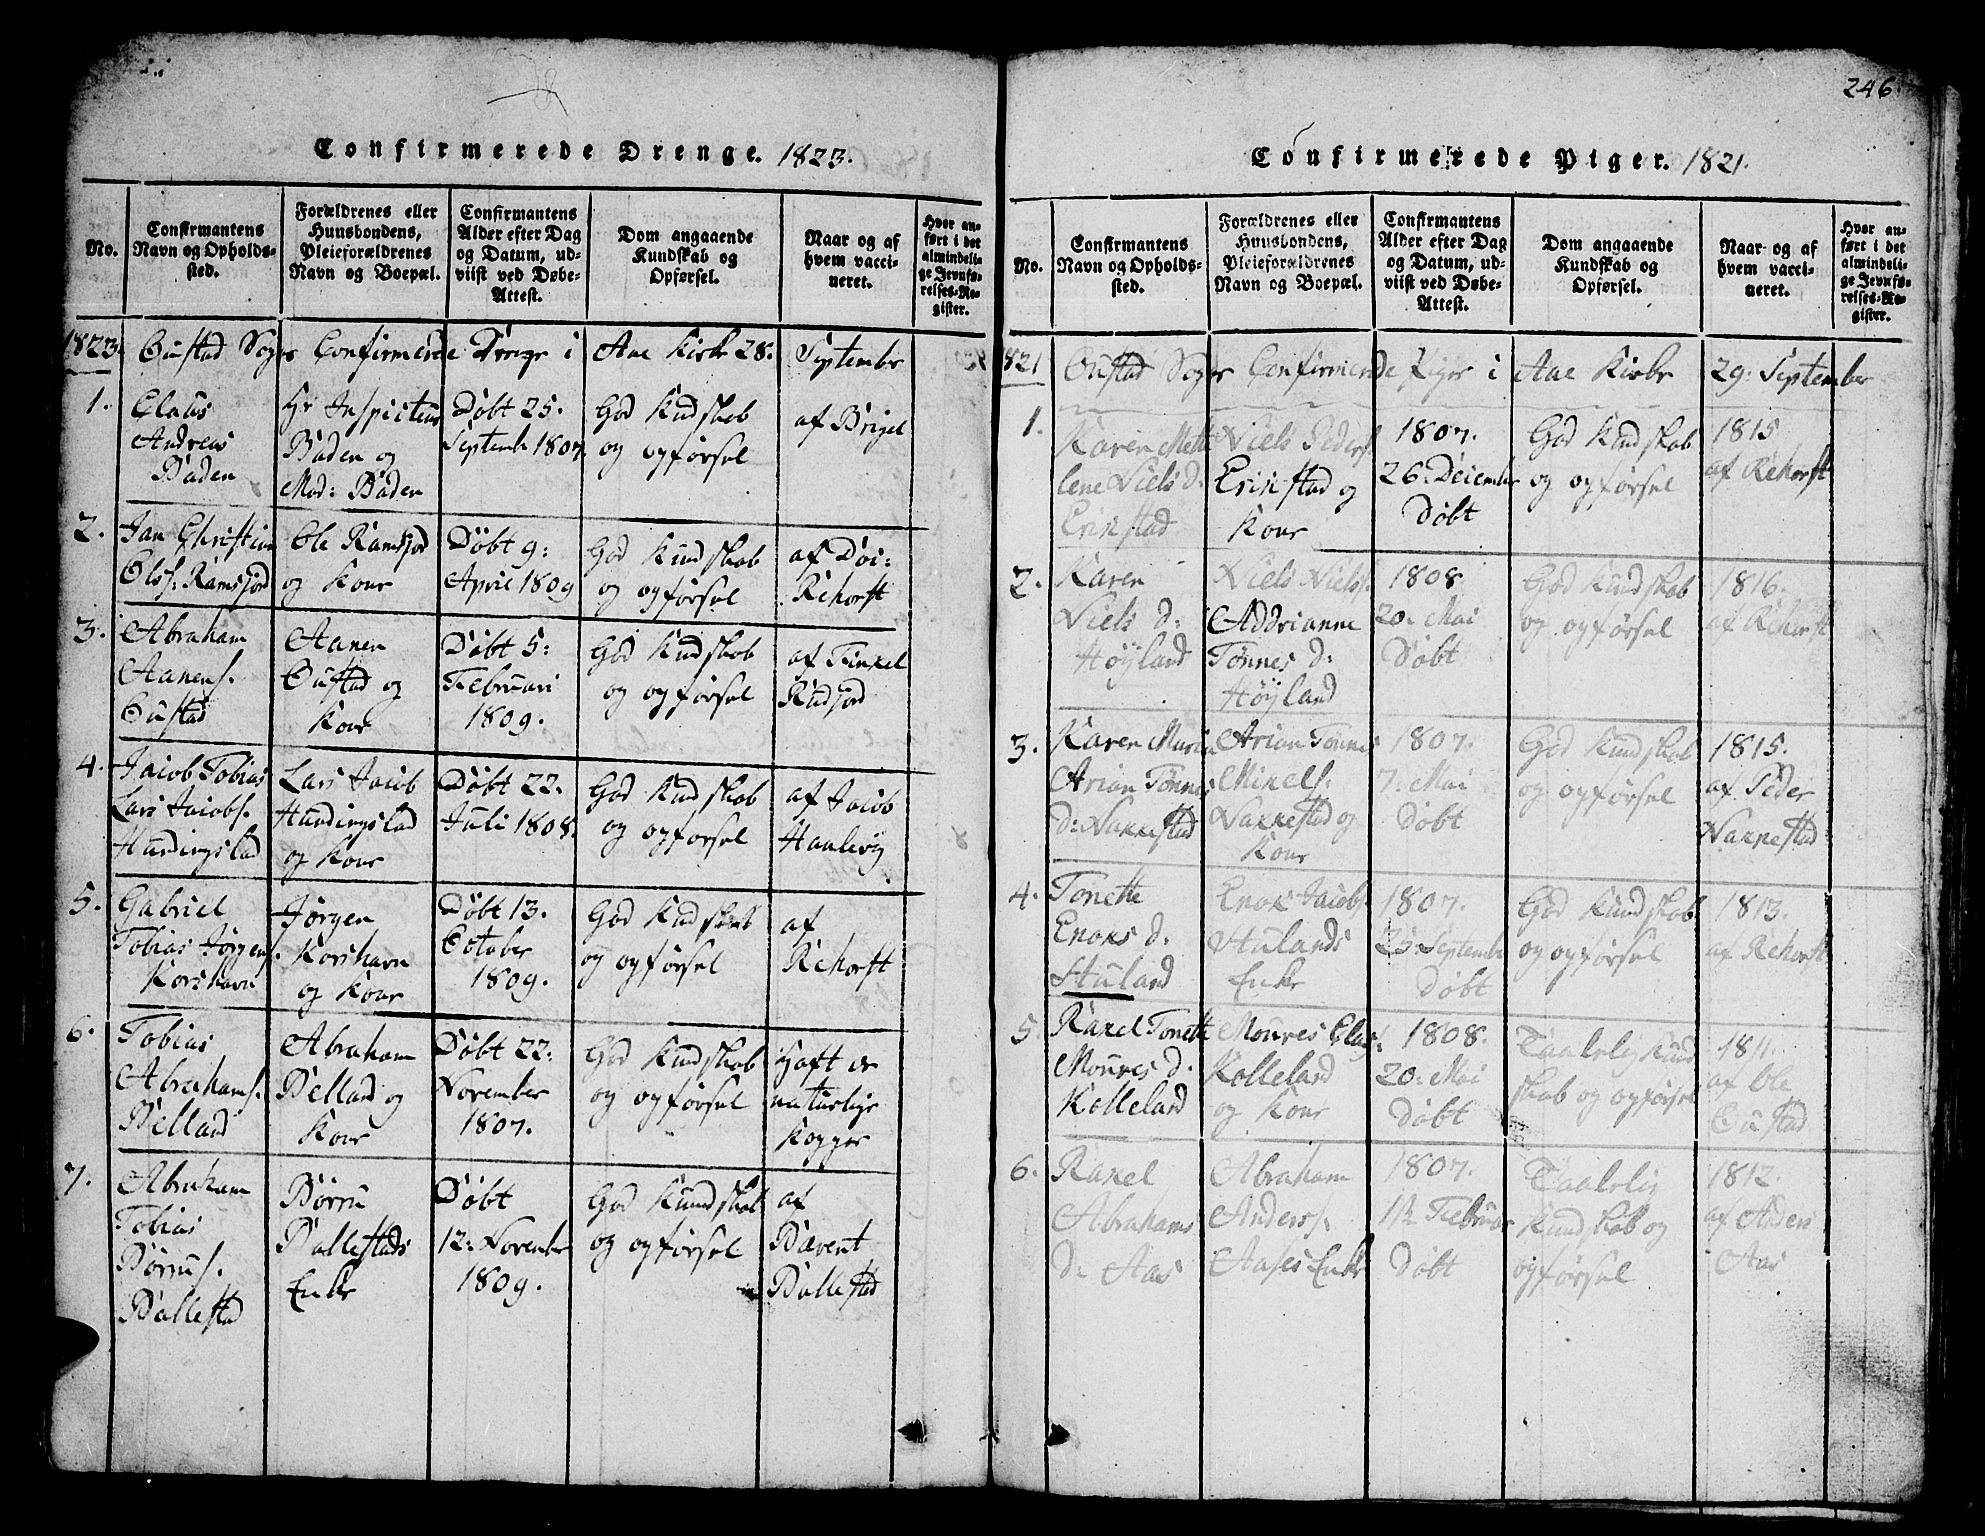 246.
Confirmerede Drenge. 1823.
No.
Confirmantens
Navn og Opholds-
sted.
Forældrenes eller
Huusbondens,
Pleieforældrenes
Navn og Boepæl.
Confirmantens
Alder efter Dag
og Datum, ud-
viist ved Døbe-
Attest.
Dom angaaende
Kundskab og
Opførsel.
Naar og af
hvem vacci-
neret.
Hvor an-
ført i det
almindeli-
ge Jevnfø-
relses-Re-
gister.
1823. Oustad Sogs Confirmerede Drenge i Aae Kirke 28. September
1.
Claus
Andreas
Baden
Hr Inspicteur
Baden og
Mad: Baden
Døbt 25.
September 1807.
God Kundskab
og opførsel
af Brigel
2.
Jan Christian
Ols: Ramsjord
Ole Ramsjord
og Kone
Døbt 9:
April 1809
God Kundskab
og opførsel
af Doi:
Rehorft
3.
Abraham
Aanens.
Oustad
Aanen
Oustad og
Kone
Døbt 5:
Februari
1809.
God Kundskab
og opførsel
af Finkel
Rudjord
4.
Jacob Tobias
Lars Jacobs.
Hundingslad
Lars Jacob
Hundingslad
og Kone
Døbt 22.
Juli 1808.
God Kundskab
og opførsel
af Jacob
Haalevig
5.
Gabriel
Tobias Jørgens.
Korshavn
Jørgen
Korshavn
og Kone
Døbt 13.
October
1809.
God Kundskab
og opførsel
af
Rehorft
6.
Tobias
Abrahams.
Belland
Abraham
Belland og
Kone
Døbt 22:
November
1807.
God Kundskab
og opførsel
Haft de
naturlige
Kopper
7.
Abraham
Tobias
Børrus.
Ballestad
Børru
Ballestads
Enke
Døbt
12: November
1809.
God Kundskab
og opførsel
af
Barent
Ballestad
Confirmerede Piger. 1821.
No.
Confirmantens
Navn og Opholds-
sted.
Forældrenes eller
Huusbondens,
Pleieforældrenes
Navn og Boepæl.
Confirmantens
Alder efter Dag
og Datum, ud-
viist ved Døbe-
Attest.
Dom angaaende
Kundskab og
Opførsel.
Naar og af
hvem vacci-
neret.
Hvor an-
ført i det
almindeli-
ge Jevnfø-
relses-Re-
gister.
1821 Oustad Sogs Confirmerede Piger i Aae Kirke 29: September
1.
Karen Mette
lene Niels d.
Erikstad
Niels Peders.
Erikstad og
Kone
1807.
26: Decembr
Døbt
God Kundskab
og opførsel
1815
af Rehorft
2.
Karen
Niels d:
Høyland
Niels Niels.
Addrianne
Tønnes d:
Høyland
1808
20: Mai
Døbt
God Kundskab
og opførsel
1816.
af Rehorft
3.
Karen Maria
Arian Tønnes
d: Nakkestad
Arian Tønnes
Mikels.
Nakkestad og
Kone
1807.
7: Mai
Døbt
God Kundskab
og opførsel
1815.
af Peder
Nakkestad
4.
Tonette
Enoks d.
Stuland
Enok Jacobs.
Stulands
Enke
1807.
25: September
Døbt
God Kundskab
og opførsel
1813.
af Rehorft
5.
Rakel Tonette
Moures d.
Kolleland
Moures Clas:
Kolleland
og Kone
1808.
20: Mai
Døbt
Taalelig Kund
skab og opførsel
1811.
af Ole
Oustad
6.
Rakel
Abrahams
d: Aas
Abraham
Anders.
Aases Enke
1807.
12 Februar
Døbt
Taalelig
Kundskab og
opførsel
1812.
af Anders
Aas